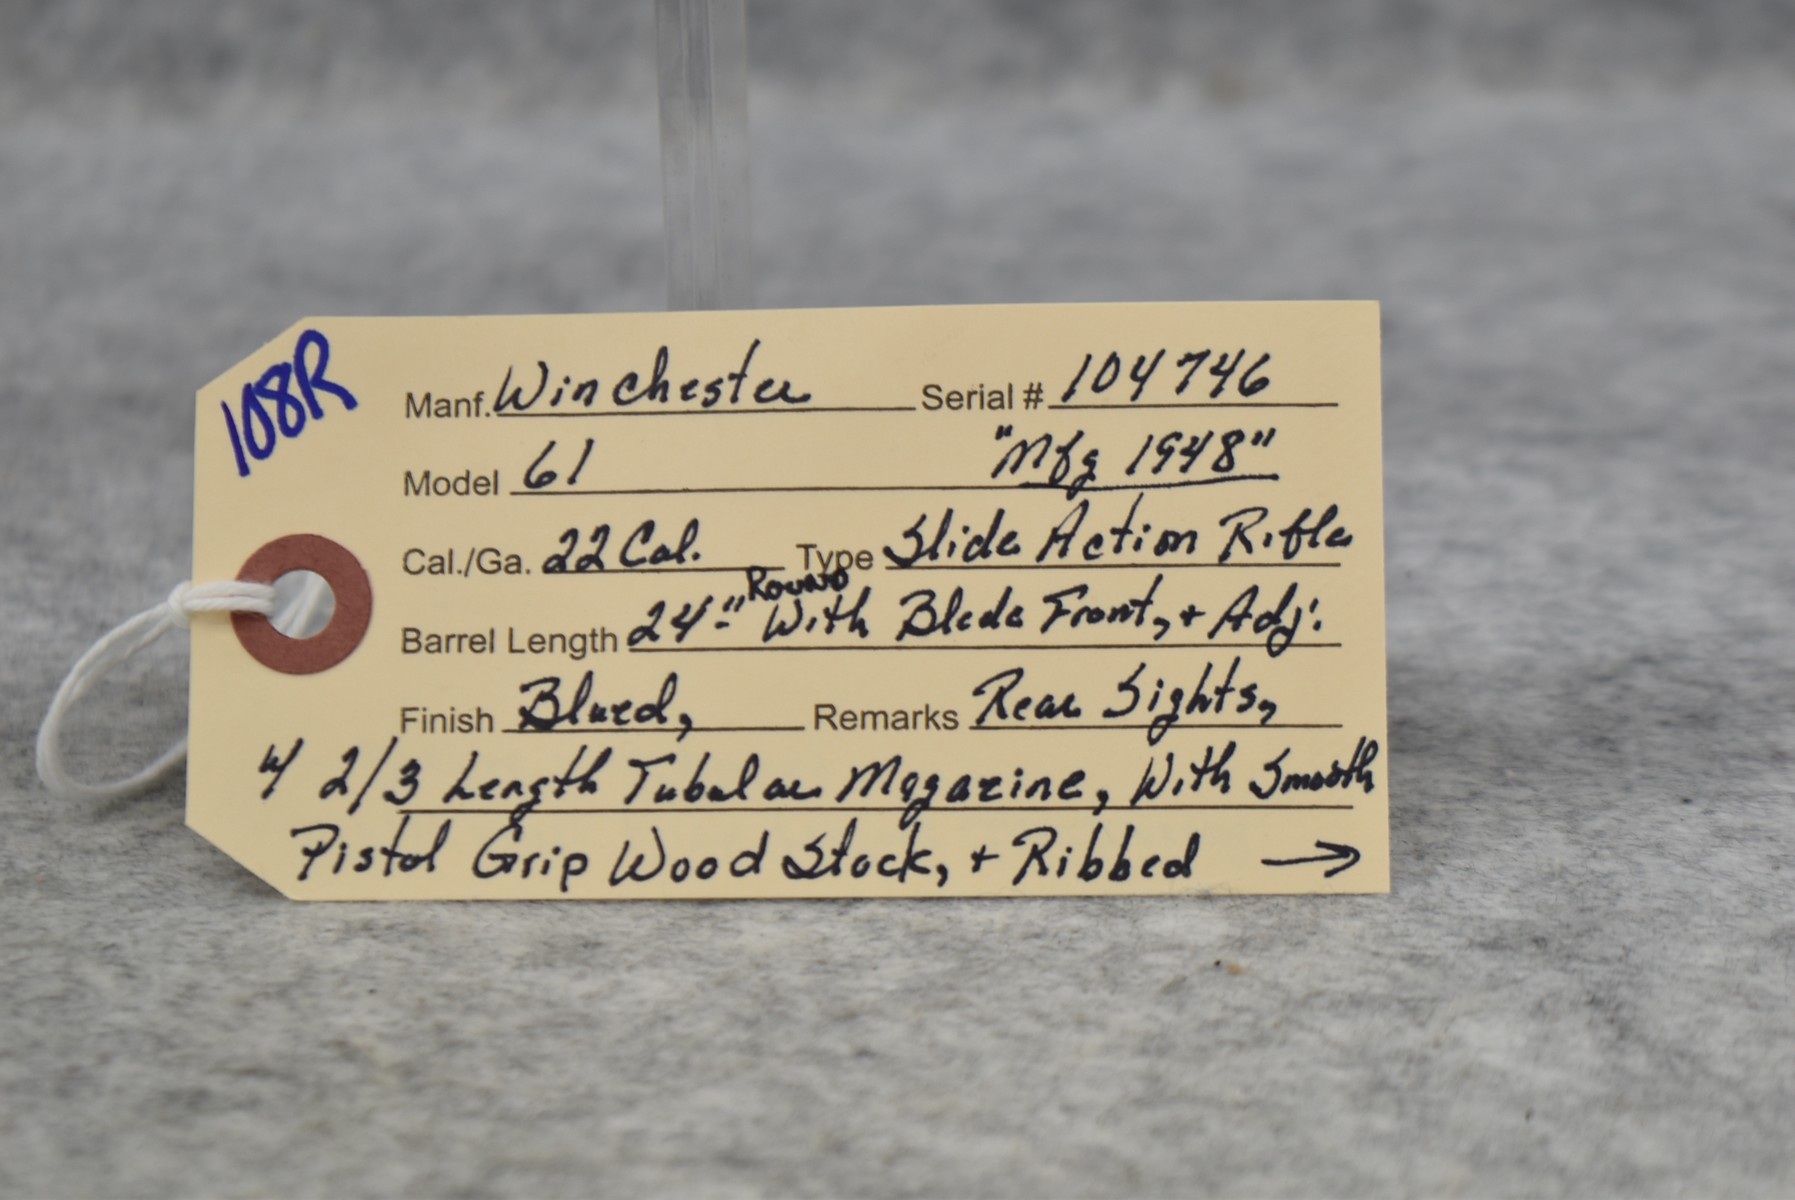 108R
Manf. Winchester Serial # 104746
Model 61 "Mfg 1948"
Cal./Ga. 22 Cal. Type Slide Action Rifle
Round
Barrel Length 24-" With Blade Front, + Adj.
Finish Blued, Remarks Rear Sights,
W/ 2/3 Length Tubular Magazine, With Smooth
Pistol Grip Wood Stock, + Ribbed →